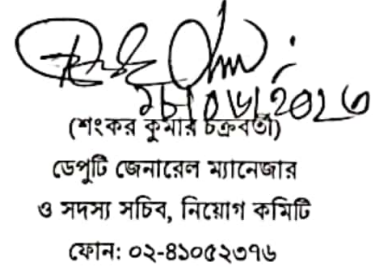 (শংকর কুমার চক্রবর্তী)
ডেপুটি জেনারেল ম্যানেজার
ও সদস্য সচিব, নিয়োগ কমিটি
ফোন: ০২-৪১০৫২৩৭৬